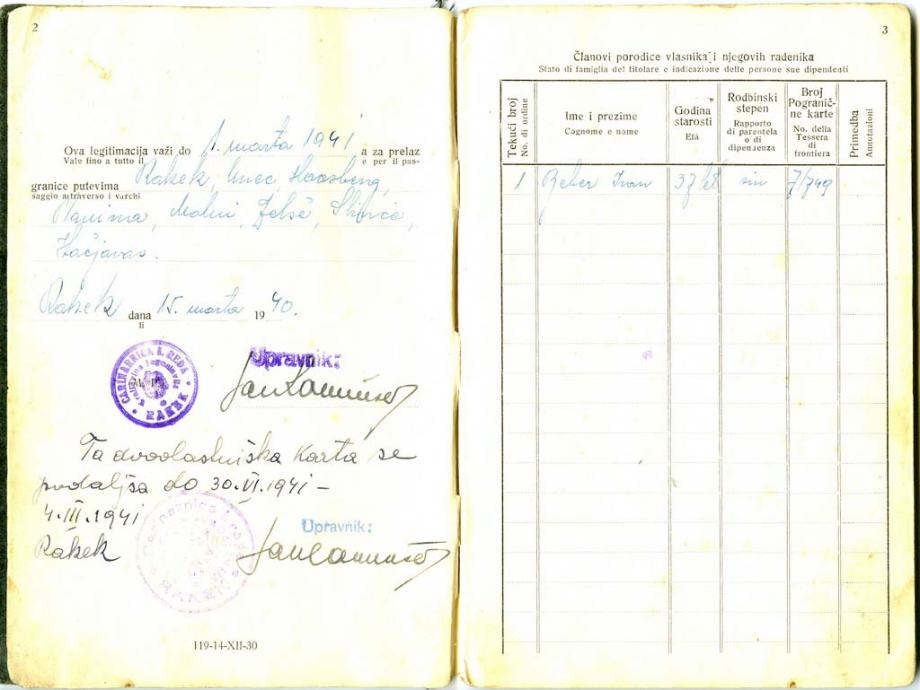 2
Ova legitimacija važi do 1. marta 1941 a za prelaz
Vale fino a tutto il e per il pas-
granice putevima Rakek, Unec Haasberg,
saggio attraverso i varchi
Planina, Malni, Zelše,
Rakek dana 15. marta 1940.
li
CARINARNICA I. REDA
RAKEK
Upravnik:
Ta dvovlastniška karta se
podaljša do 30.VI.1941 –
4.III.1941
Rakek
Upravnik:
RAKEK
119-14-XII-30
3
Članovi porodice vlasnika i njegovih radenika
Stato di famiglia del titolare e indicazione delle persone sue dipendenti
Tekući broj
No. di ordine
Ime i prezime
Cognome e nome
Godina
starosti
Età
Rodbinski
stepen
Rapporto
di parentela
o di
dipendenza
Broj
Pogranič-
ne karte
No. della
Tessera
di
frontiera
Primedba
Annotazioni
1 Beber Ivan 37 let sin 7/749